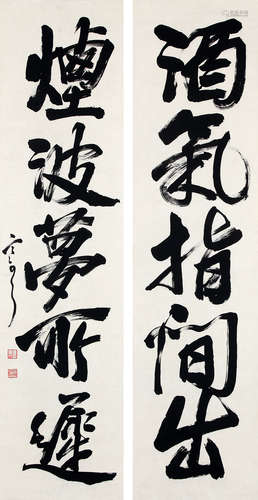 酒氣指間出
煙波夢所纏